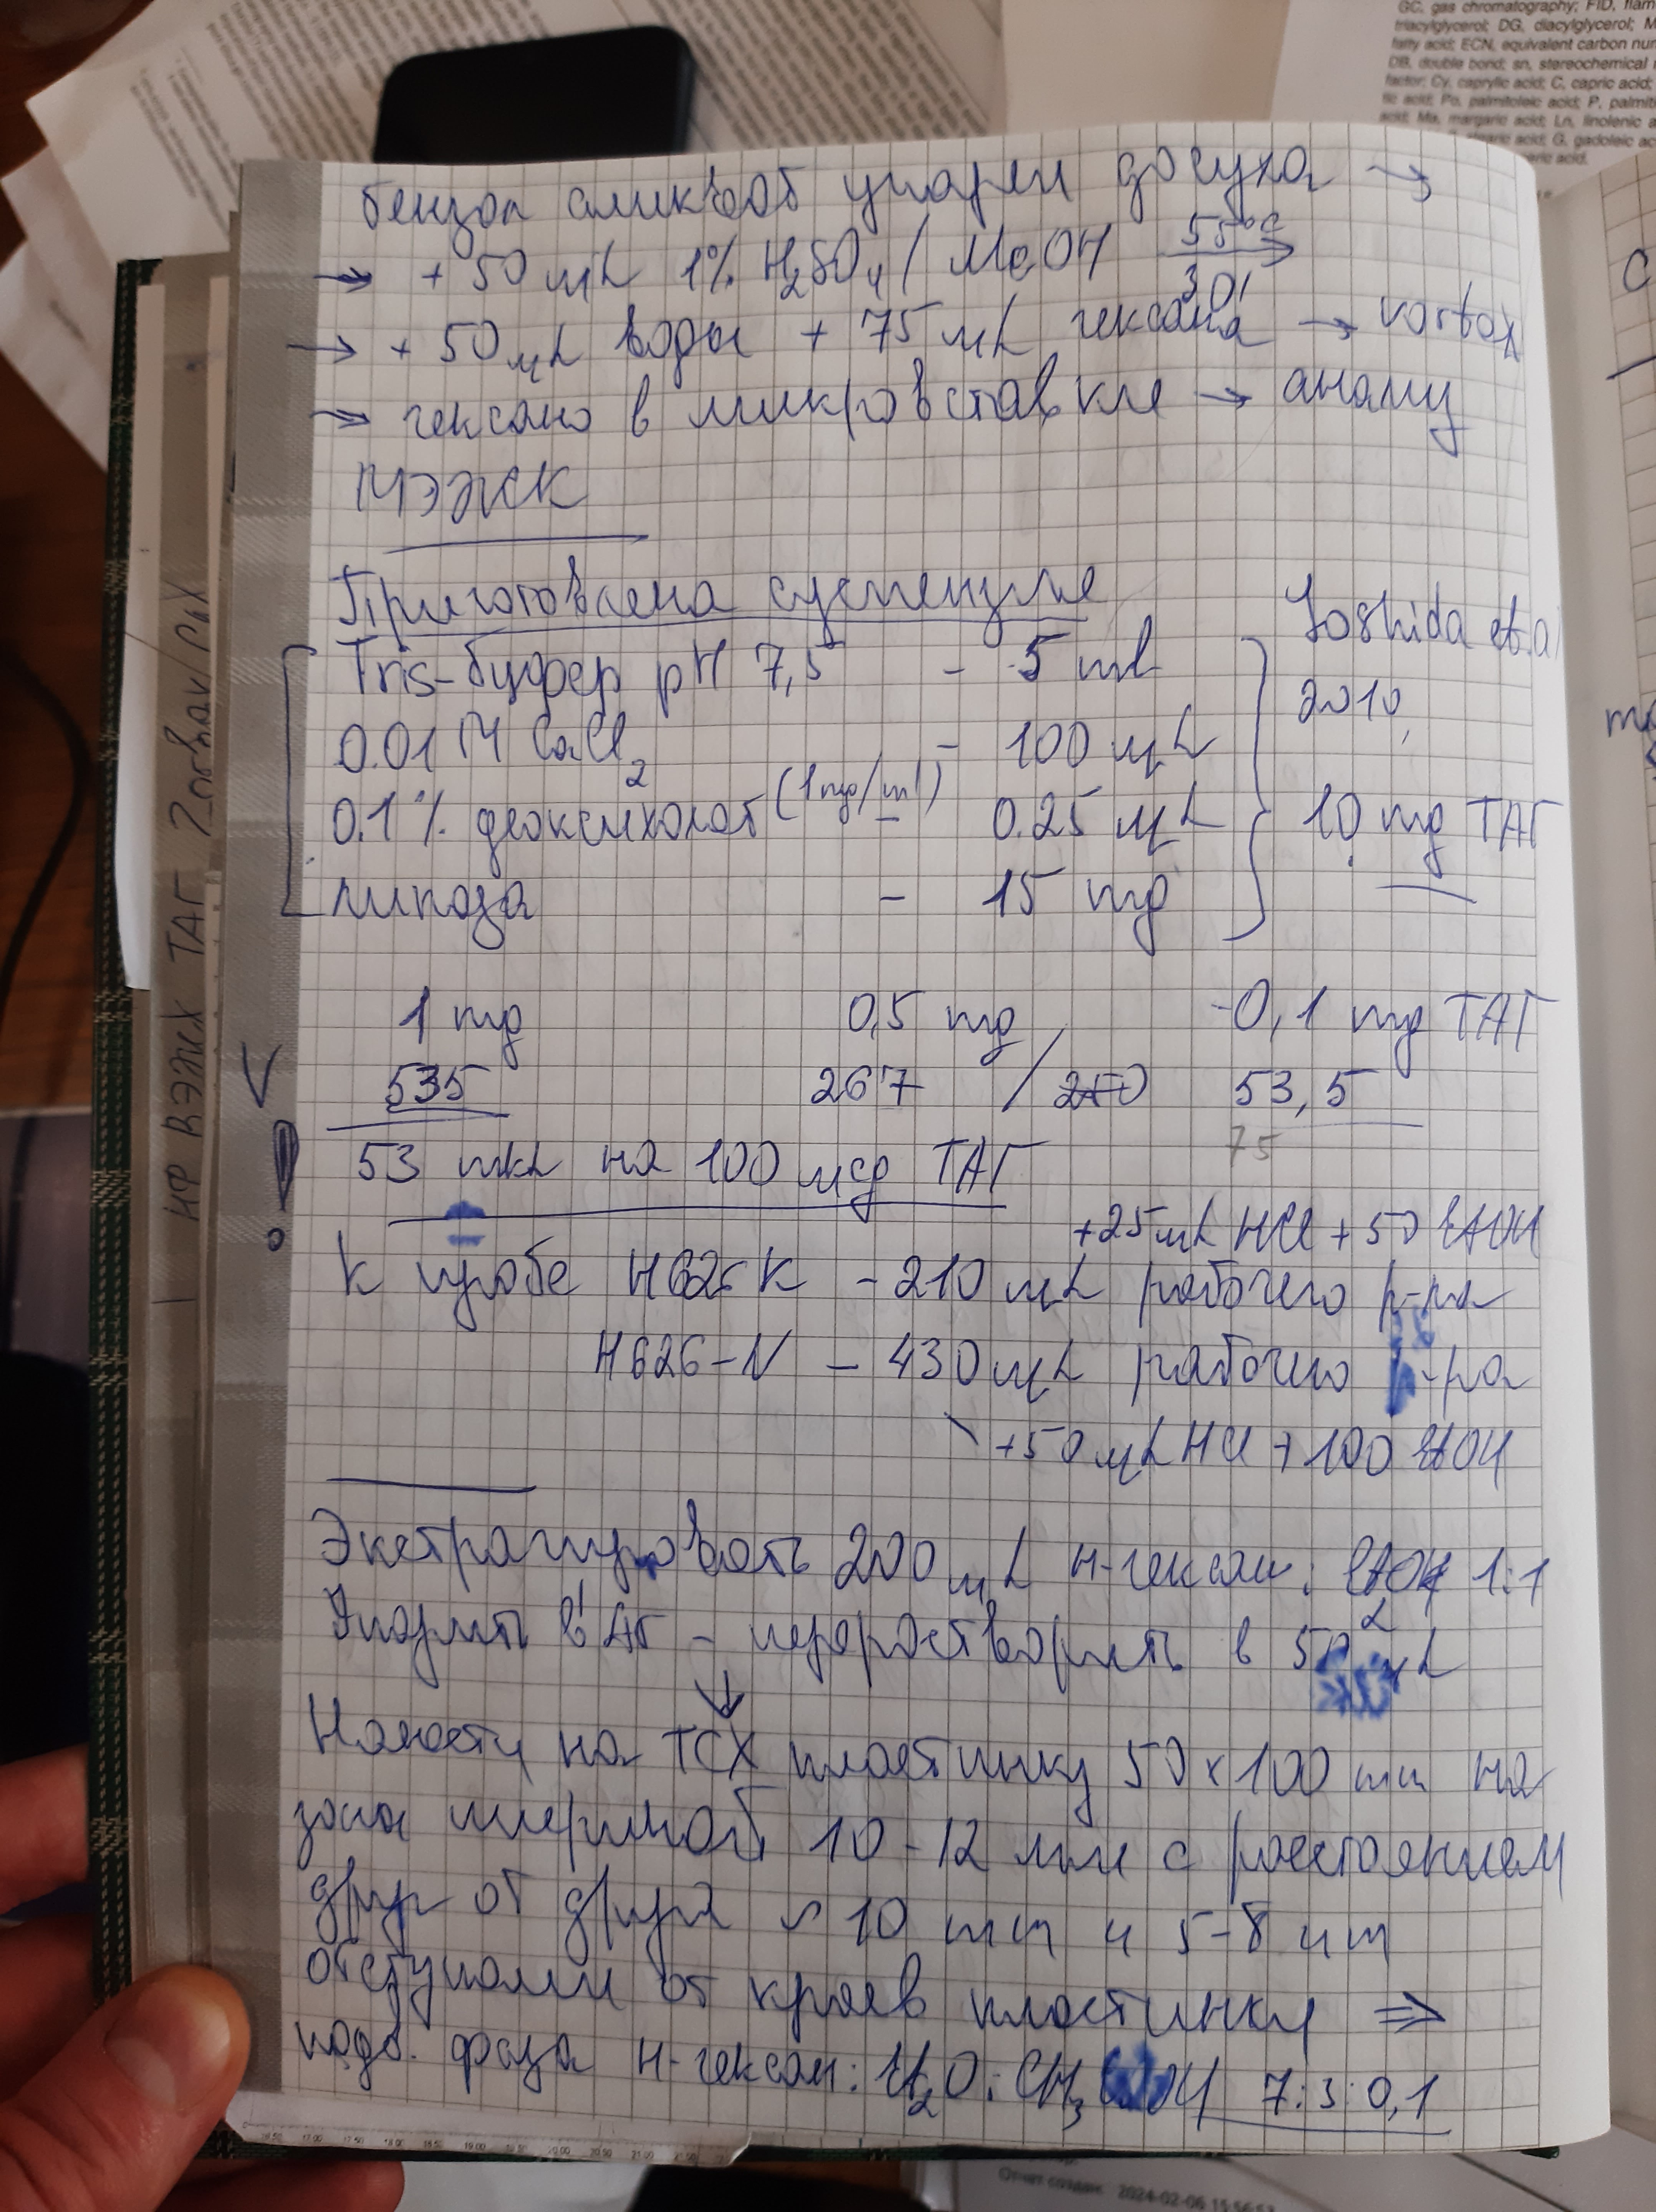 GC, gas chromatography; FID, flam
triacylglycerol; DG, diacylglycerol; M
fatty acid; ECN, equivalent carbon nu
DB, double bond; sn, stereochemical
factor; Cy, caprylic acid; C, capric acid;
tic acid; Po, palmitoleic acid; P, palmit
acid; Ma, margaric acid; Ln, linolenic a
stearic acid; G, gadoleic ac
eric acid.
бензол аликвот упарен досуха →
→ + 50 мкL 1% H2SO4 / MeOH 55°C 30' →
→ + 50 мкL воды + 75 мкL гексана → vortex
→ гексано в микровставкие → анализ
МЭЖК
Приготовлена суспензия
Yoshida et.al
Tris-буфер pH 7,5 - 5 ml
2010,
0.01 M CaCl2 - 100 мкL
0.1% деоксихолат (1mg/ml) - 0.25 мкL
10 mg ТАГ
липаза - 15 mg
1 mg 0,5 mg 0,1 mg ТАГ
535 267 / 270 53,5
75
53 mкL на 100 мсg ТАГ
+25 мкL HCl + 50 EtOH
к пробе H626-K - 210 мкL рабочего р-ра
H626-N - 430 мкL рабочего р-ра
+50 мкL HCl + 100 EtOH
Экстрагировать 200 мкL н-гексан: EtOH 1:1
Упарить в Ar - перерастворить в 50 мкL
Нанести на ТСХ пластинку 50 x 100 mm на
зоны шириной 10-12 мм с расстоянием
друг от друга ~ 10 mm и 5-8 mm
отступами от краев пластинки ⇒
подв. фаза н-гексан: Et2O: CH3COOH 7:3:0,1
НФ ВЭЖХ ТАГ Zorbax/Rx
Отчет создан: 2024-02-06 15:56:53